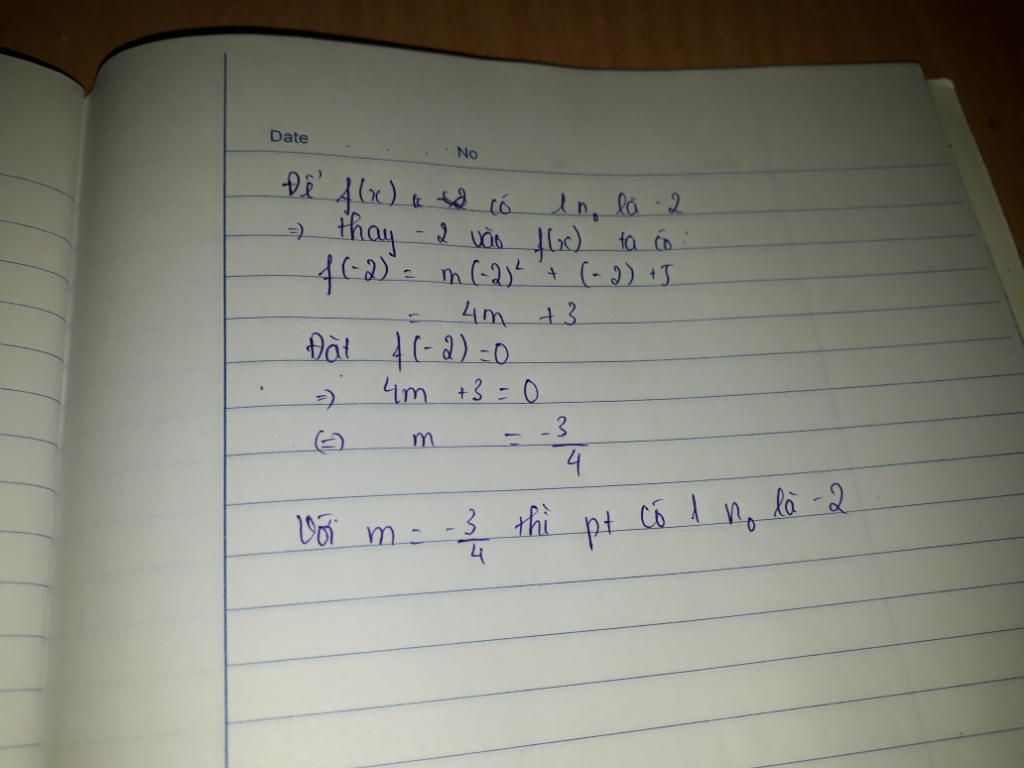 Date No
Để f(x) có 1 n₀ là -2
=> thay -2 vào f(x) ta có:
f(-2) = m(-2)² + (-2) + 5
= 4m + 3
Đặt f(-2) = 0
=> 4m + 3 = 0
(=) m = -3/4
Với m = -3/4 thì pt có 1 n₀ là -2